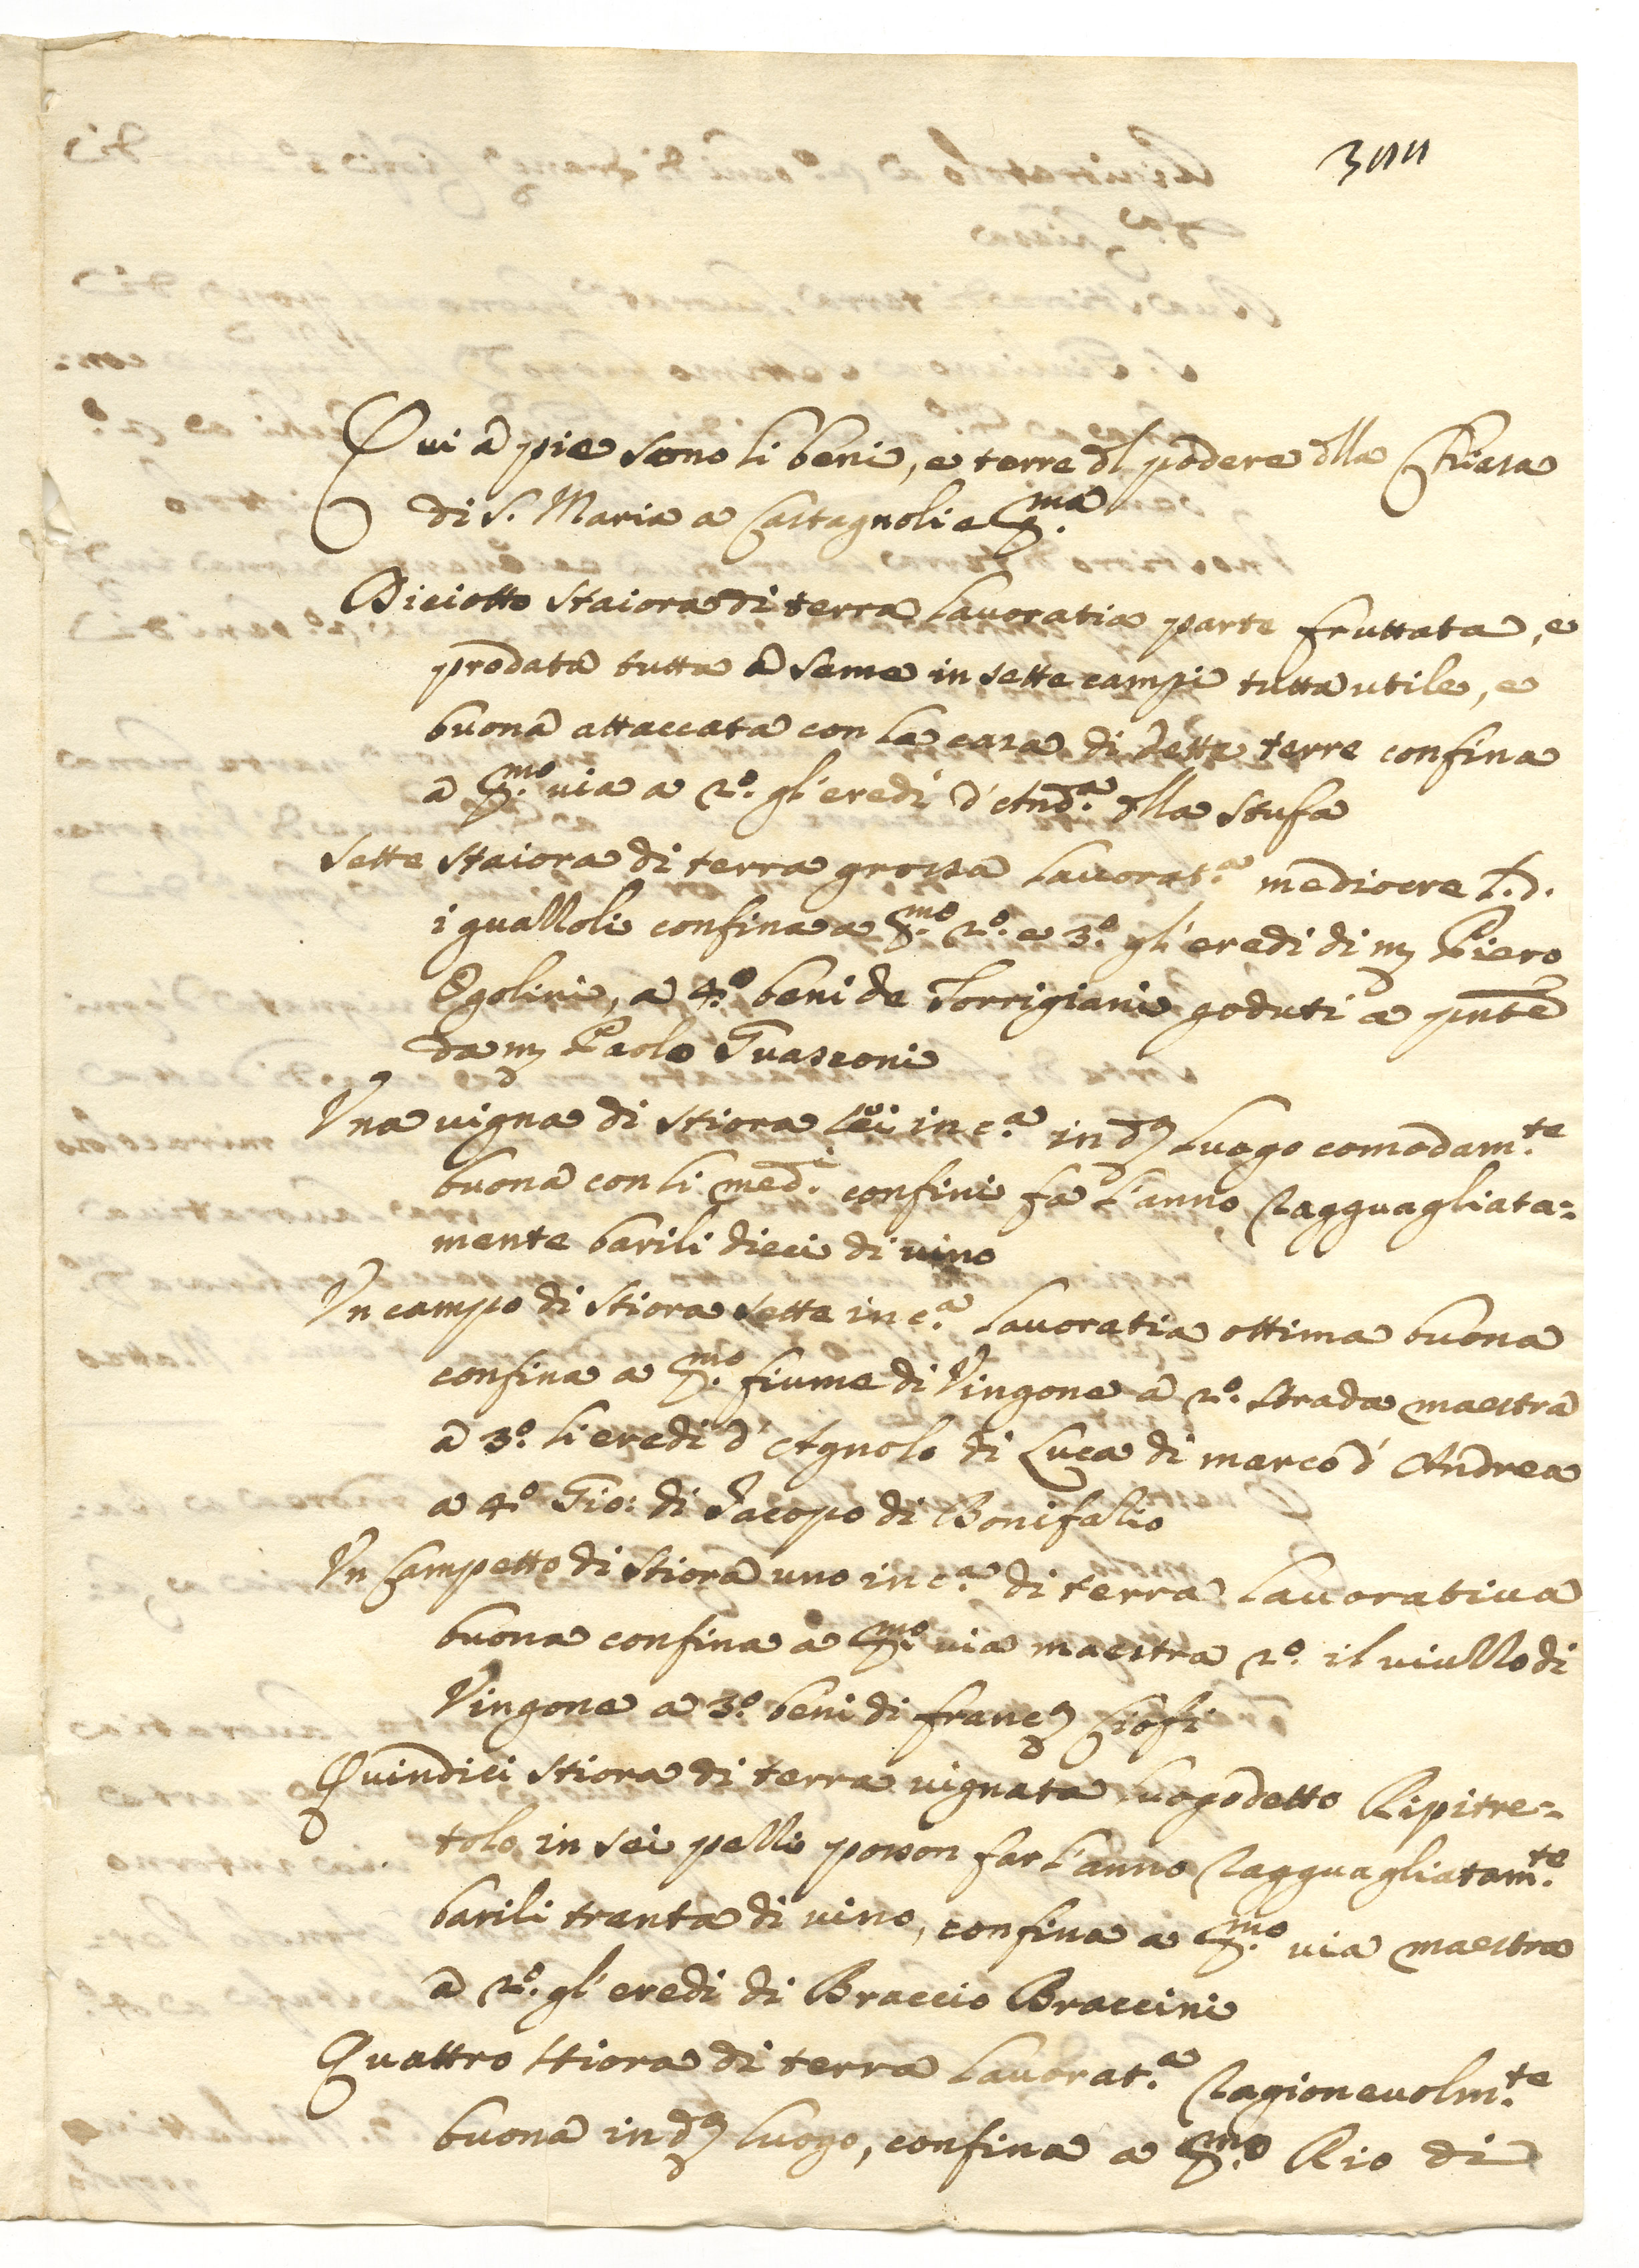 Qui à pie sono li beni, e terre dl podere dlla Chiesa
di S. Maria a Castagnoli e P.ma
Diciotto staiora di terra lauoratia parte fruttata, e
prodata tutta à seme in sette campi tutta utile, e
buona attaccata con la casa di dette terre confina
à P.mo uia a 2º. gl'eredi d'And.ª dlla Stufa
Sette staiora di terra grossa lauorat.ª mediocre l.d.
i gualloli confina a P.mo 2º. e 3º. gl'eredi di m Piero
Ugolini, a 4º beni de Torrigiani goduti a pnte
da m Paolo Guasconi
Vna uigna di stiora sei in c.ª in d. luogo comodam.te
buona con li med.i confini fa l'anno ragguagliata=
mente barili dieci di uino
Vn campo di stiora sette in c.ª lauoratia ottima buona
confina a P.mo fiume di Vingone à 2º. strada maestra
à 3º. li eredi d'Agnolo di Luca di marco d'Andrea
a 4º Gio: di Jacopo di Bonifatio
Vn Campetto di stiora uno in c.ª di terra lauoratiua
buona confina a P.mo uia maestra 2º. il uiullo di
Vingone a 3º. beni di franc. Ciofi
Quindici stiora di terra uignata luogo detto Ripitre=
tolo in sei pelli posson far l'anno ragguagliatam.te
barili tranta di uino, confina a P.mo uia maestra
à 2º. gl'eredi di Braccio Braccini
Quattro stiora di terra lauorat.ª ragioneuolm.te
buona in d. luogo, confina a P.mo Rio di